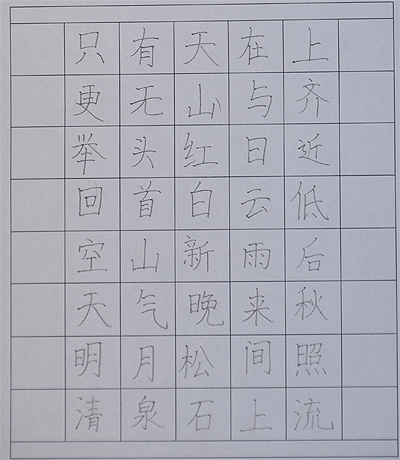 只有天在上
更无山与齐
举头红日近
回首白云低
空山新雨后
天气晚来秋
明月松间照
清泉石上流